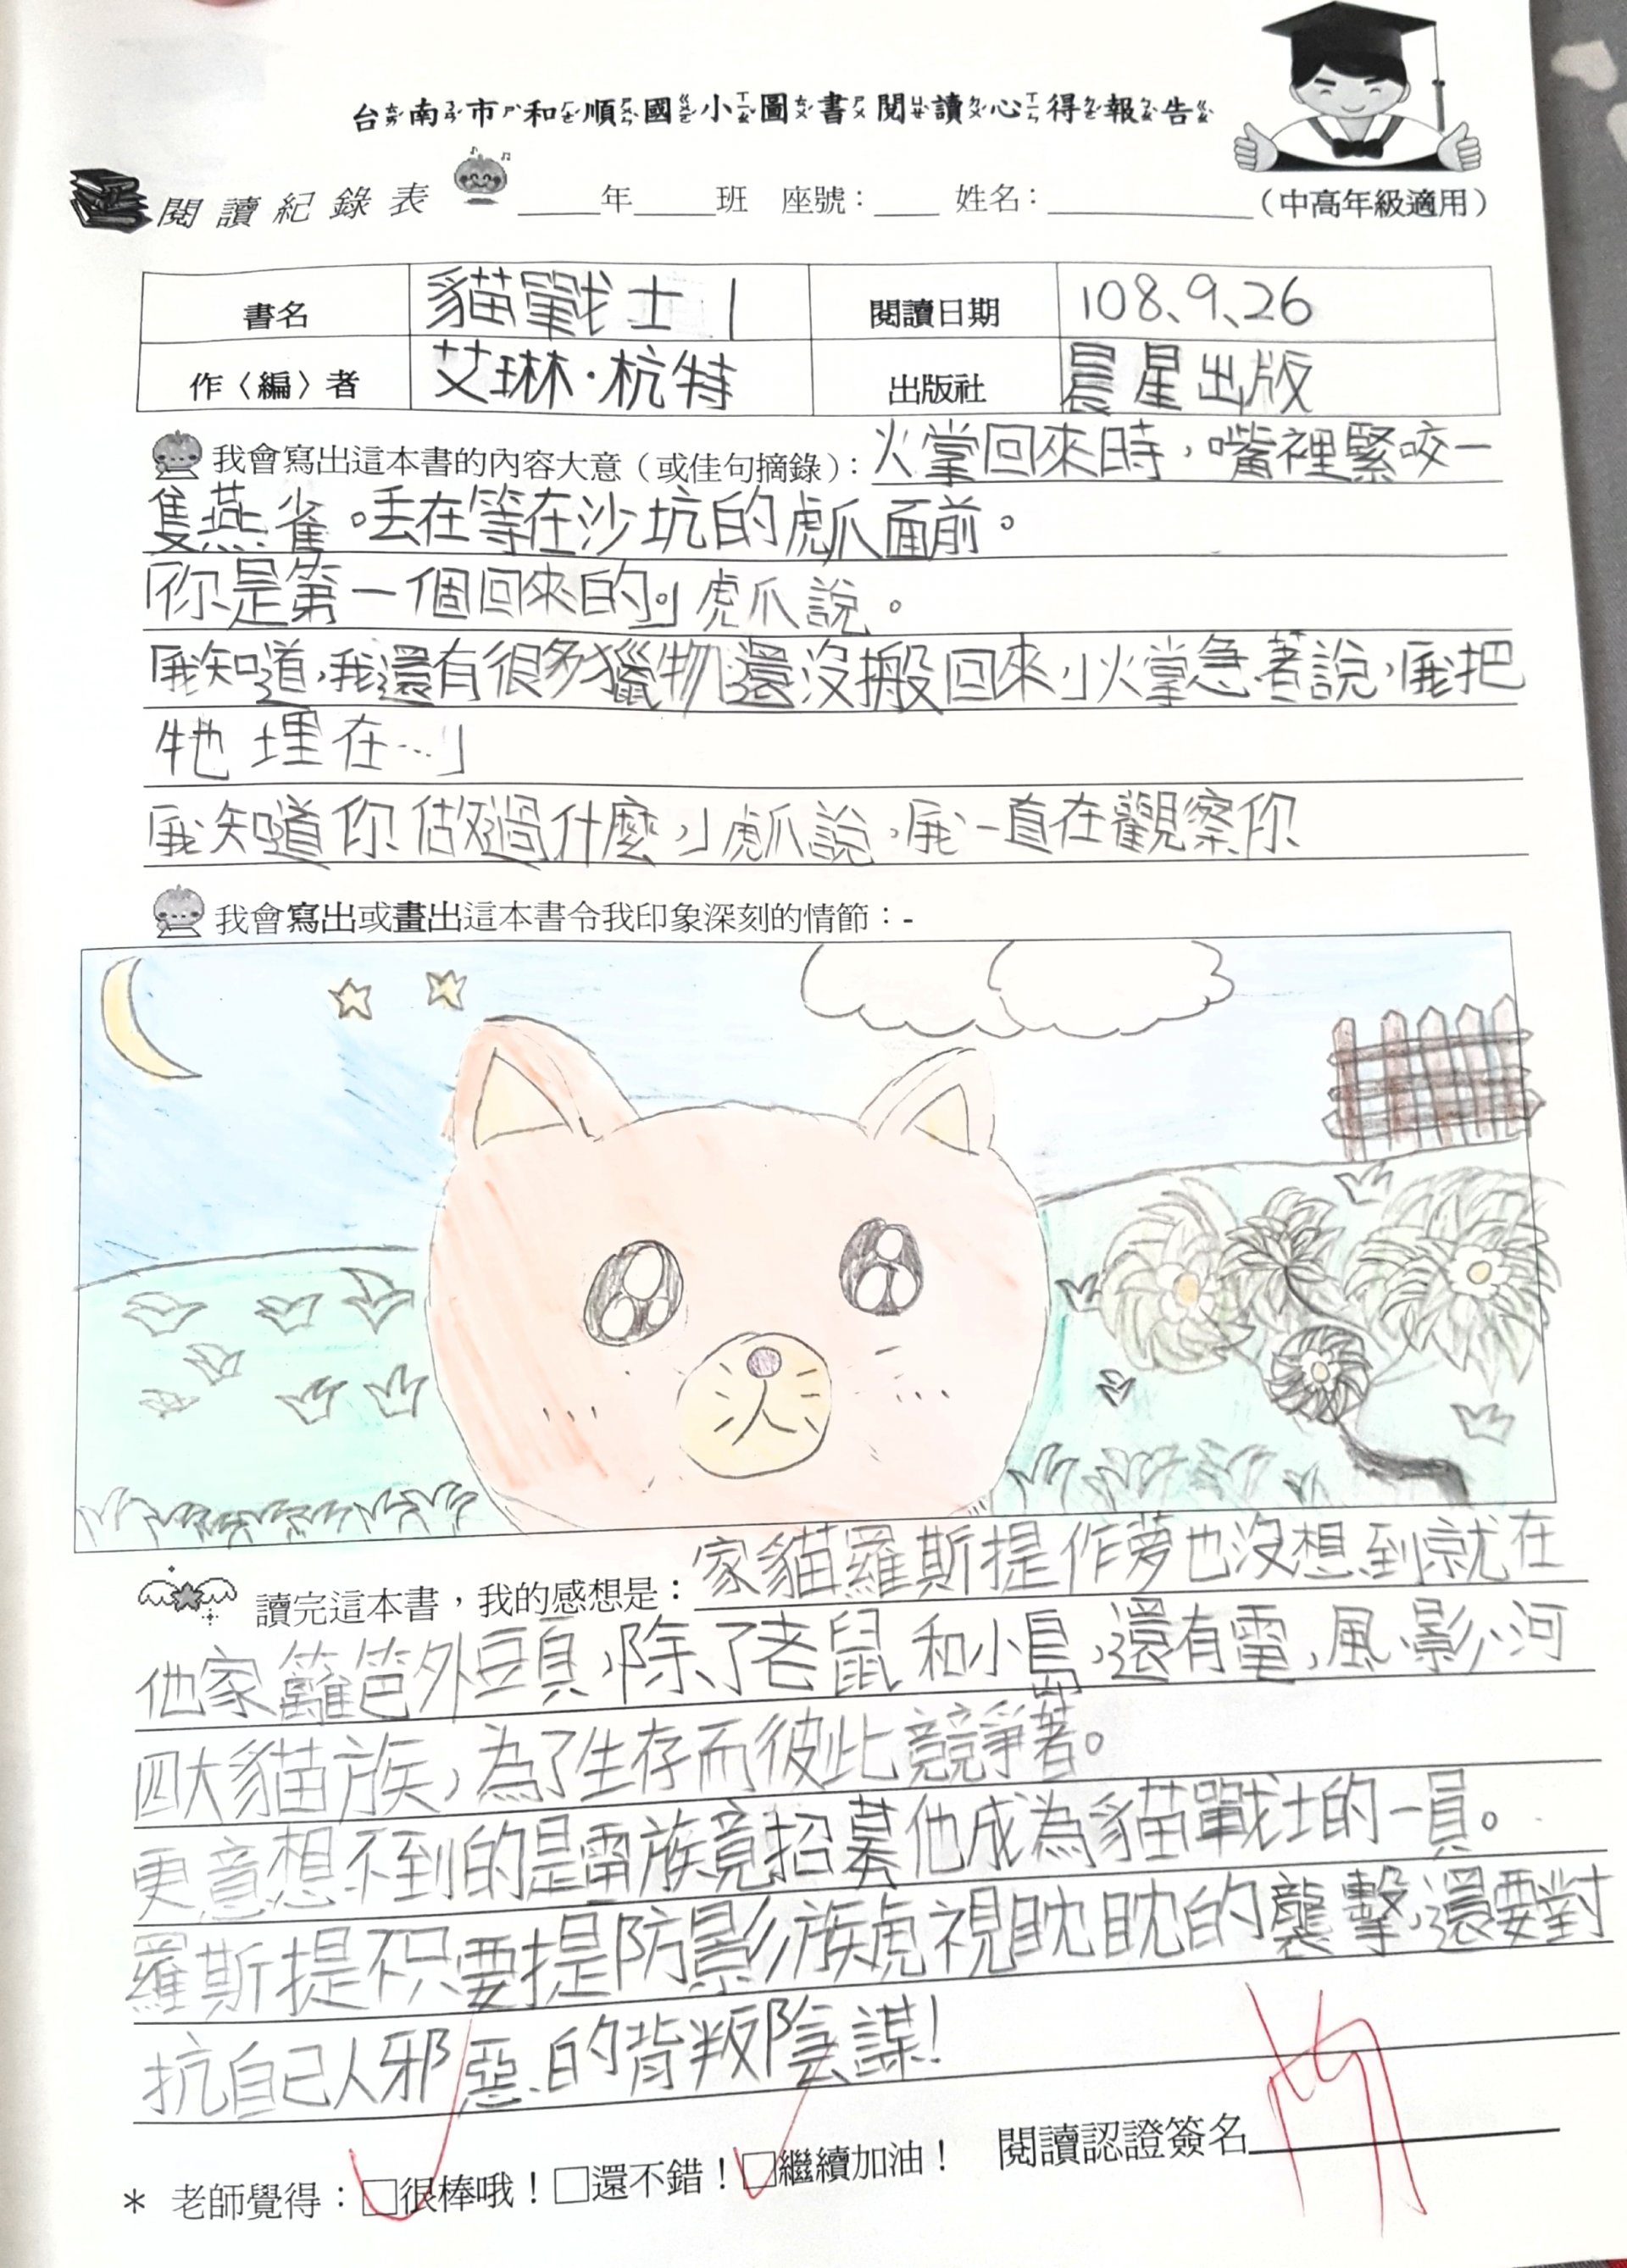 台南市和順國小圖書閱讀心得報告
閱讀紀錄表 ____年____班 座號：___ 姓名：__________（中高年級適用）
書名 貓戰士 1 閱讀日期 108、9、26
作〈編〉者 艾琳·杭特 出版社 晨星出版
我會寫出這本書的內容大意（或佳句摘錄）：火掌回來時，嘴裡緊咬一
隻燕雀。丟在等在沙坑的虎爪面前。
「你是第一個回來的。」虎爪說。
「我知道，我還有很多獵物還沒搬回來」火掌急著說，「我把
牠埋在…」
「我知道你做過什麼，」虎爪說，「我一直在觀察你
我會寫出或畫出這本書令我印象深刻的情節：-
讀完這本書，我的感想是：家貓羅斯提作夢也沒想到就在
他家籬笆外頭，除了老鼠和小鳥，還有雷，風、影、河
四大貓族，為了生存而彼此競爭著。
更意想不到的是雷族竟招募他成為貓戰士的一員。
羅斯提不只要提防影族虎視眈眈的襲擊，還要對
抗自己人邪惡的背叛陰謀！
＊ 老師覺得：□很棒哦！□還不錯！□繼續加油！ 閱讀認證簽名